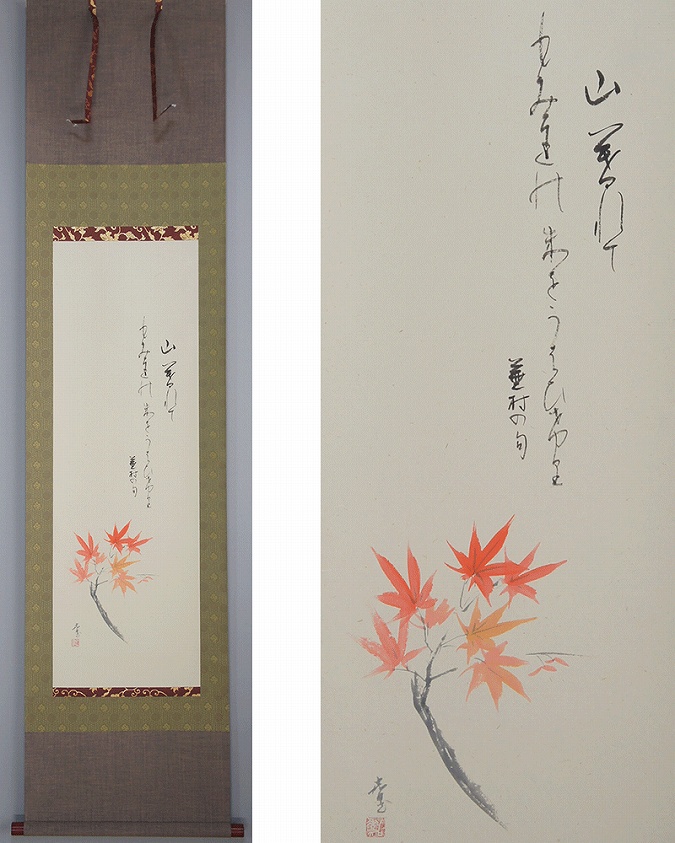 山暮れて
もみちの朱をうはひけり
蕪村の句